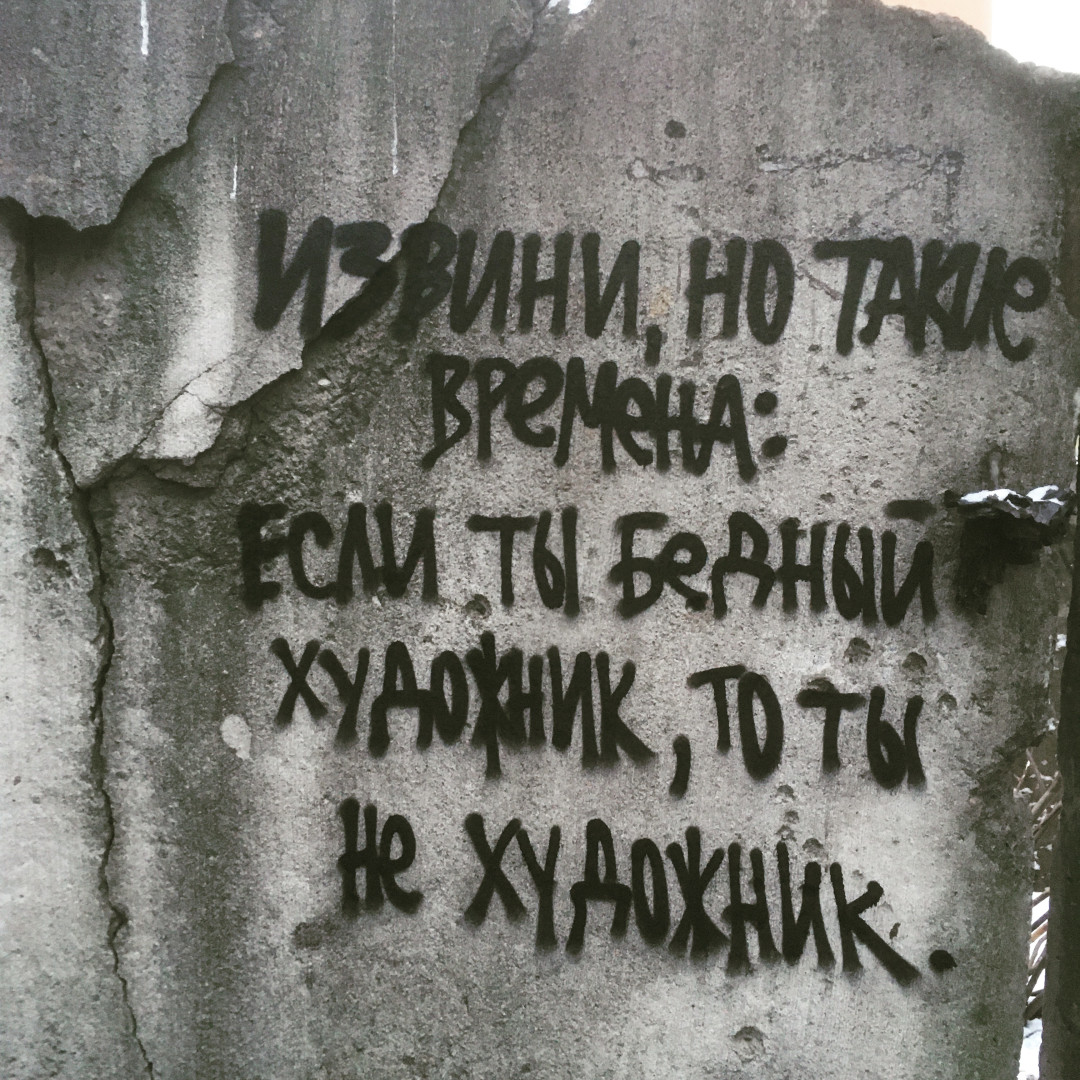 ИЗВИНИ, НО ТАКИЕ
ВРЕМЕНА:
ЕСЛИ ТЫ БЕДНЫЙ
ХУДОЖНИК, ТО ТЫ
НЕ ХУДОЖНИК.